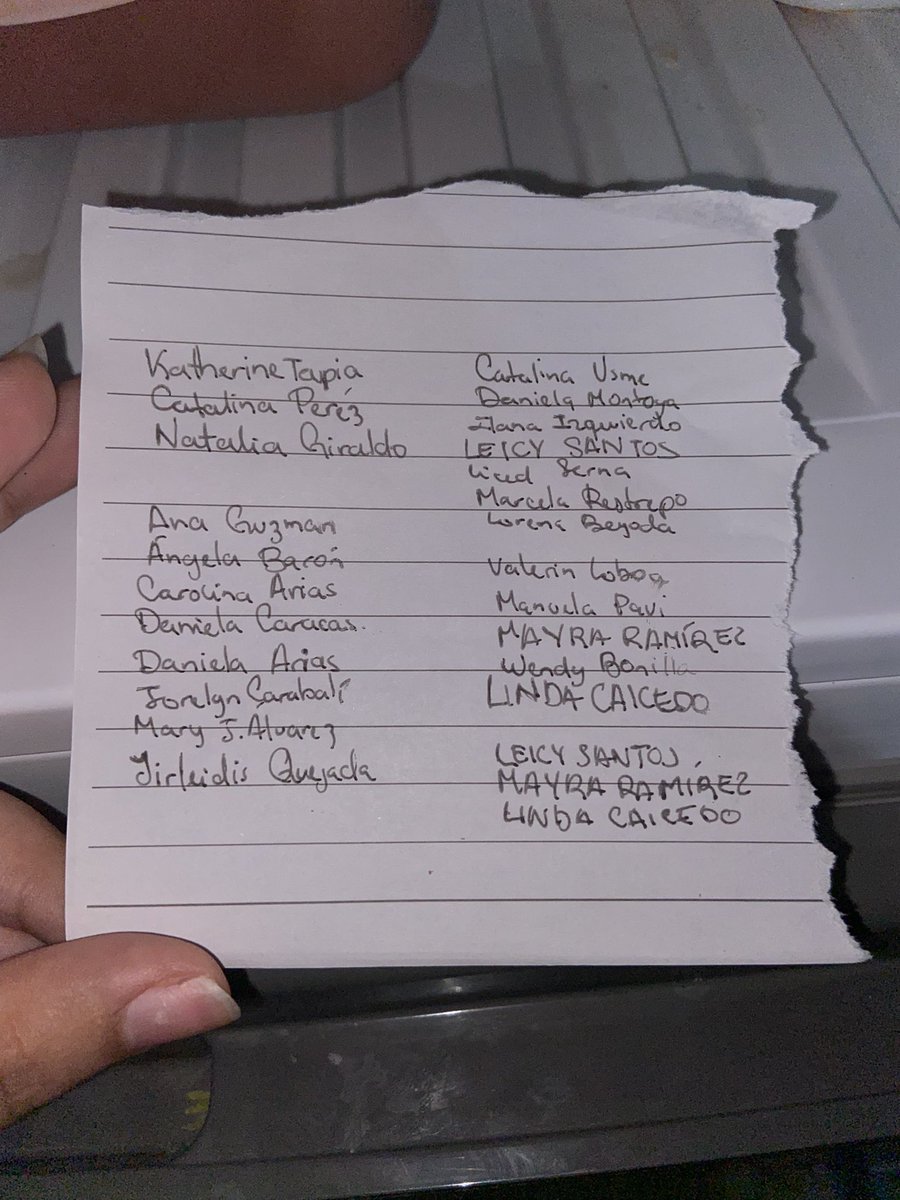 Katherine Tapia
Catalina Peréz
Natalia Giraldo
Ana Guzman
Ángela Barón
Carolina Arias
Daniela Caracas.
Daniela Arias
Jorelyn Carabalí
Mary J. Alvarez
Yirleidis Quejada
Catalina Usme
Daniela Montoya
Ilana Izquierdo
LEICY SANTOS
Liced Serna
Marcela Restrepo
Lorena Begoda
Valerin Loboa
Manuela Pavi
MAYRA RAMÍREZ
Wendy Bonilla
LINDA CAICEDO
LEICY SANTOS,
MAYRA RAMIREZ
LINDA CAICEDO